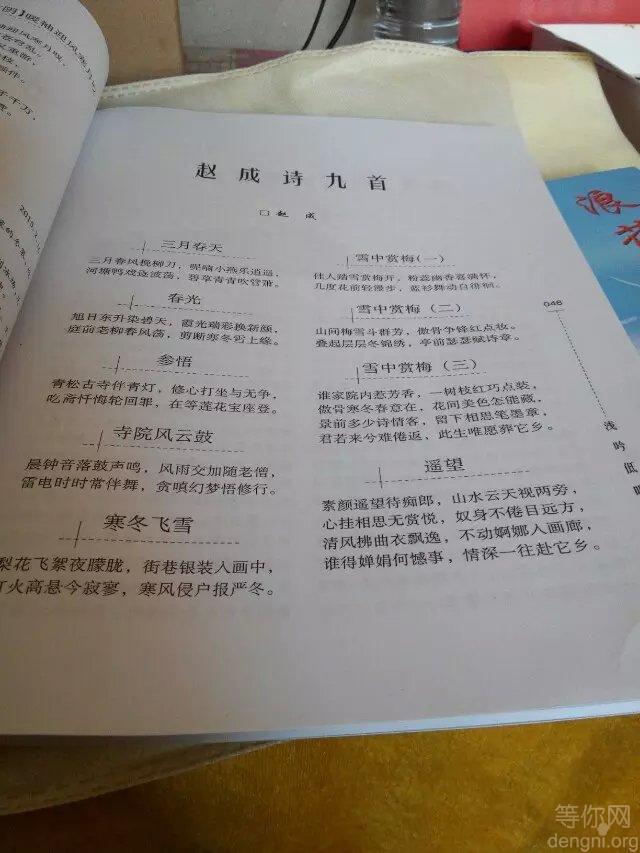 赵成诗九首
□赵 成
三月春天
三月春风挽柳刀，呢喃小燕乐逍遥，
河塘鸭戏逐波荡，碧草青青吹管箫。
春光
旭日东升染碧天，霞光瑞彩换新颜，
庭前老柳春风荡，剪断寒冬雪上缘。
参悟
青松古寺伴青灯，修心打坐与无争，
吃斋忏悔轮回罪，在等莲花宝座登。
寺院风云鼓
晨钟音落鼓声鸣，风雨交加随老僧，
雷电时时常伴舞，贪嗔幻梦悟修行。
寒冬飞雪
梨花飞絮夜朦胧，街巷银装入画中，
灯火高悬今寂寥，寒风侵户报严冬。
雪中赏梅(一)
佳人踏雪赏梅开，粉蕊幽香喜满怀，
几度花前轻漫步，蓝衫舞动自徘徊。
雪中赏梅(二)
山间梅雪斗群芳，傲骨争锋红点妆。
叠起层层冬锦绣，亭前瑟瑟赋诗章。
雪中赏梅(三)
谁家院内惹芳香，一树枝红巧点装，
傲骨寒冬春意在，花间美色怎能藏，
景前多少诗情客，留下相思笔墨章，
君若来兮难倦返，此生唯愿葬它乡。
遥望
素颜遥望待痴郎，山水云天视两旁，
心挂相思无赏悦，奴身不倦目远方，
清风拂曲衣飘逸，不动婀娜人画廊，
谁得婵娟何憾事，情深一往赴它乡。
048
浅吟低
浪
等你网
dengni.org